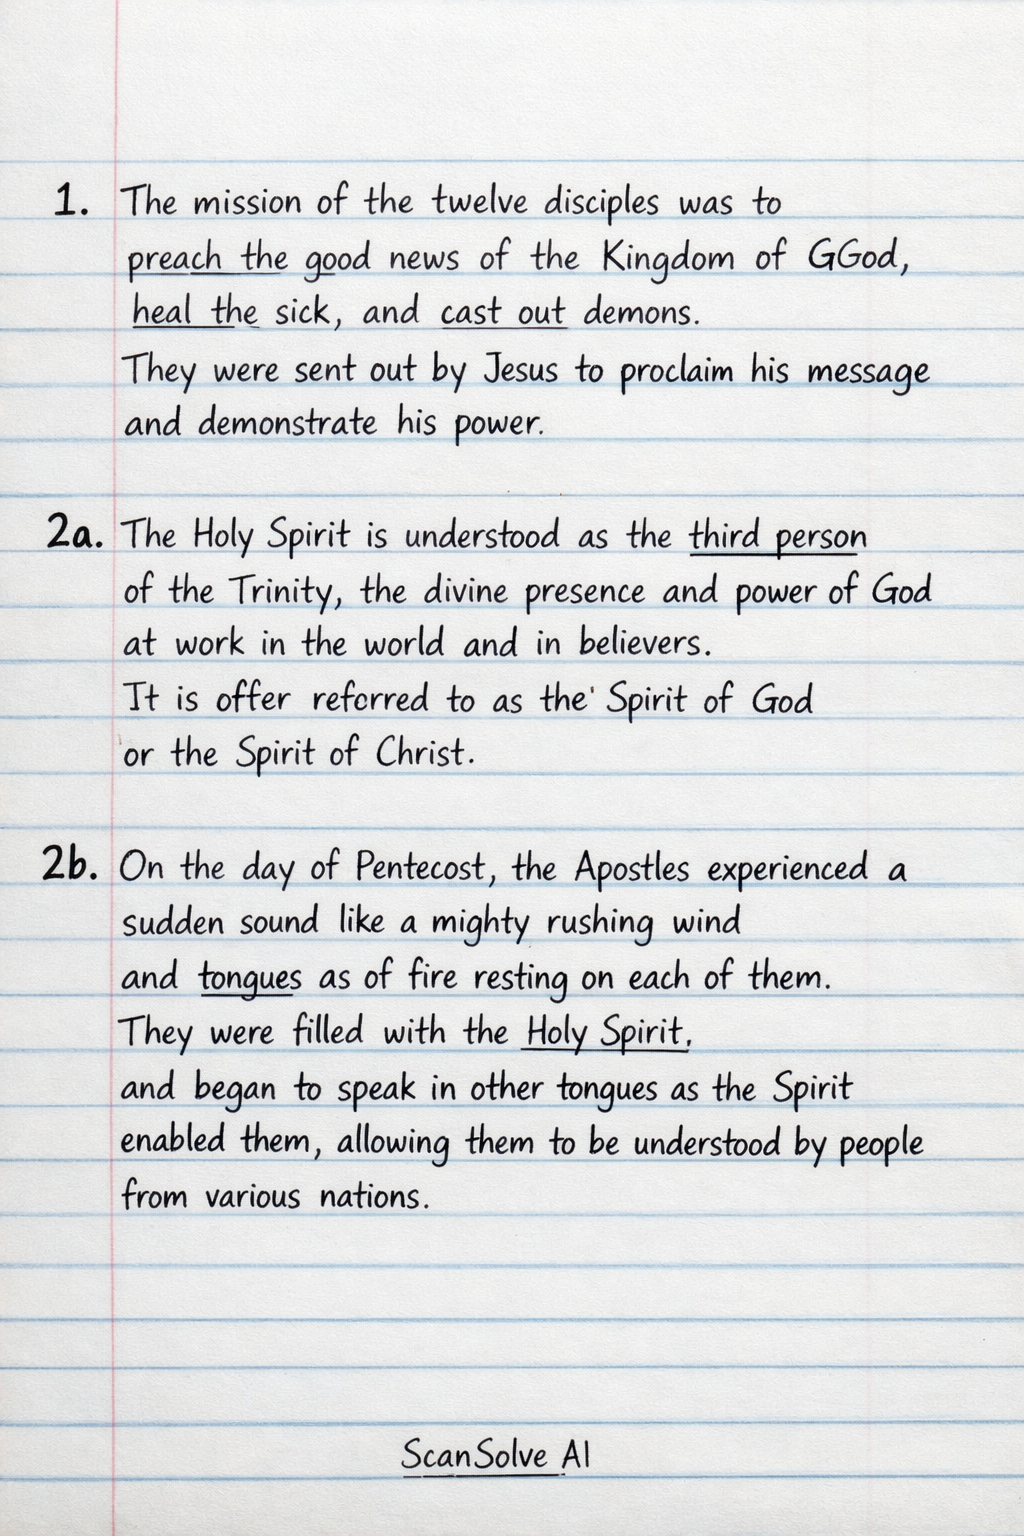 1. The mission of the twelve disciples was to
preach the good news of the Kingdom of GGod,
heal the sick, and cast out demons.
They were sent out by Jesus to proclaim his message
and demonstrate his power.
2a. The Holy Spirit is understood as the third person
of the Trinity, the divine presence and power of God
at work in the world and in believers.
It is offer refcrred to as the' Spirit of God
'or the Spirit of Christ.
2b. On the day of Pentecost, the Apostles experienced a
sudden sound like a mighty rushing wind
and tongues as of fire resting on each of them.
They were filled with the Holy Spirit,
and began to speak in other tongues as the Spirit
enabled them, allowing them to be understood by people
from various nations.
ScanSolve AI